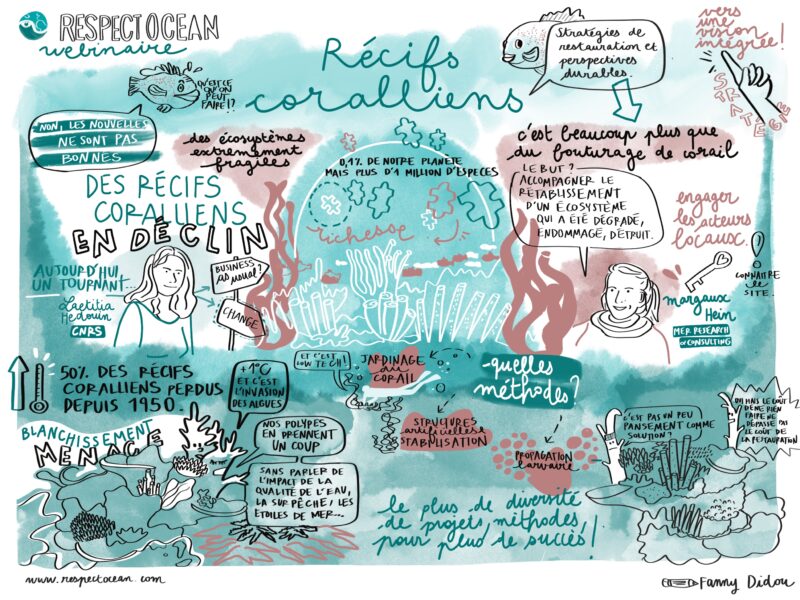 RESPECT OCEAN
webinaire
Récifs
coralliens
Stratégies de
restauration et
perspectives
durables.
vers
une
vision
intégrée!
STRATÉGIE
QU'EST CE
QU'ON
PEUT
FAIRE!?
NON, LES NOUVELLES
NE SONT PAS
BONNES
des écosystèmes
extrêmement
fragiles
0,1% DE NOTRE PLANÈTE
MAIS PLUS D'1 MILLION D'ESPÈCES
richesse
c'est beaucoup plus que
du bouturage de corail
LE BUT?
ACCOMPAGNER LE
RÉTABLISSEMENT
D'UN ÉCOSYSTÈME
QUI A ÉTÉ DÉGRADÉ,
ENDOMMAGÉ, DÉTRUIT.
engager
les acteurs
locaux.
CONNAÎTRE
LE
SITE
DES RÉCIFS
CORALLIENS
EN DÉCLIN
AUJOURD'HUI
UN TOURNANT...
Laetitia
Hedouin
CNRS
BUSINESS
as usual?
CHANGE
margaux
Hein
MER RESEARCH
& CONSULTING
50% DES RÉCIFS
CORALLIENS PERDUS
DEPUIS 1950.
+1°C
ET C'EST
L'INVASION
DES ALGUES
BLANCHISSEMENT
MENACE
NOS POLYPES
EN PRENNENT
UN COUP
SANS PARLER DE
L'IMPACT DE LA
QUALITÉ DE L'EAU,
LA SUR PÊCHE, LES
ETOILES DE MER...
ET C'EST
LOW TECH!
JARDINAGE
du
CORAIL
quelles
méthodes?
STRUCTURES
artificielles
STABILISATION
PROPAGATION
larvaire
C'EST PAS UN PEU
PANSEMENT COMME
SOLUTION?
NE RIEN
FAIRE NE
DÉPASSE PAS
LE COÛT DE
LA RESTAURATION
le plus de diversité
de projets, méthodes,
pour plus de succès!
www.respectocean.com
Fanny Didou